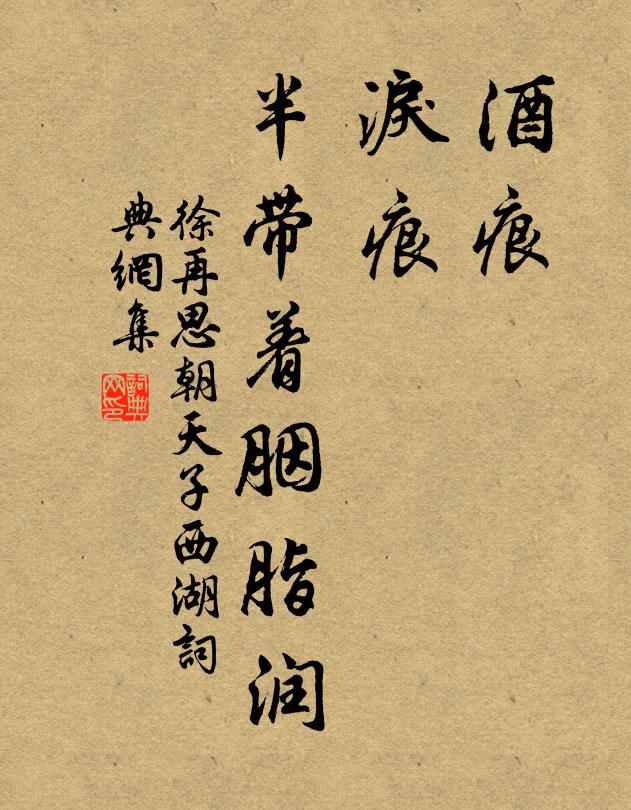 酒痕
淚痕
半带着胭脂润
徐再思朝天子西湖詞
典網集
詞典網印